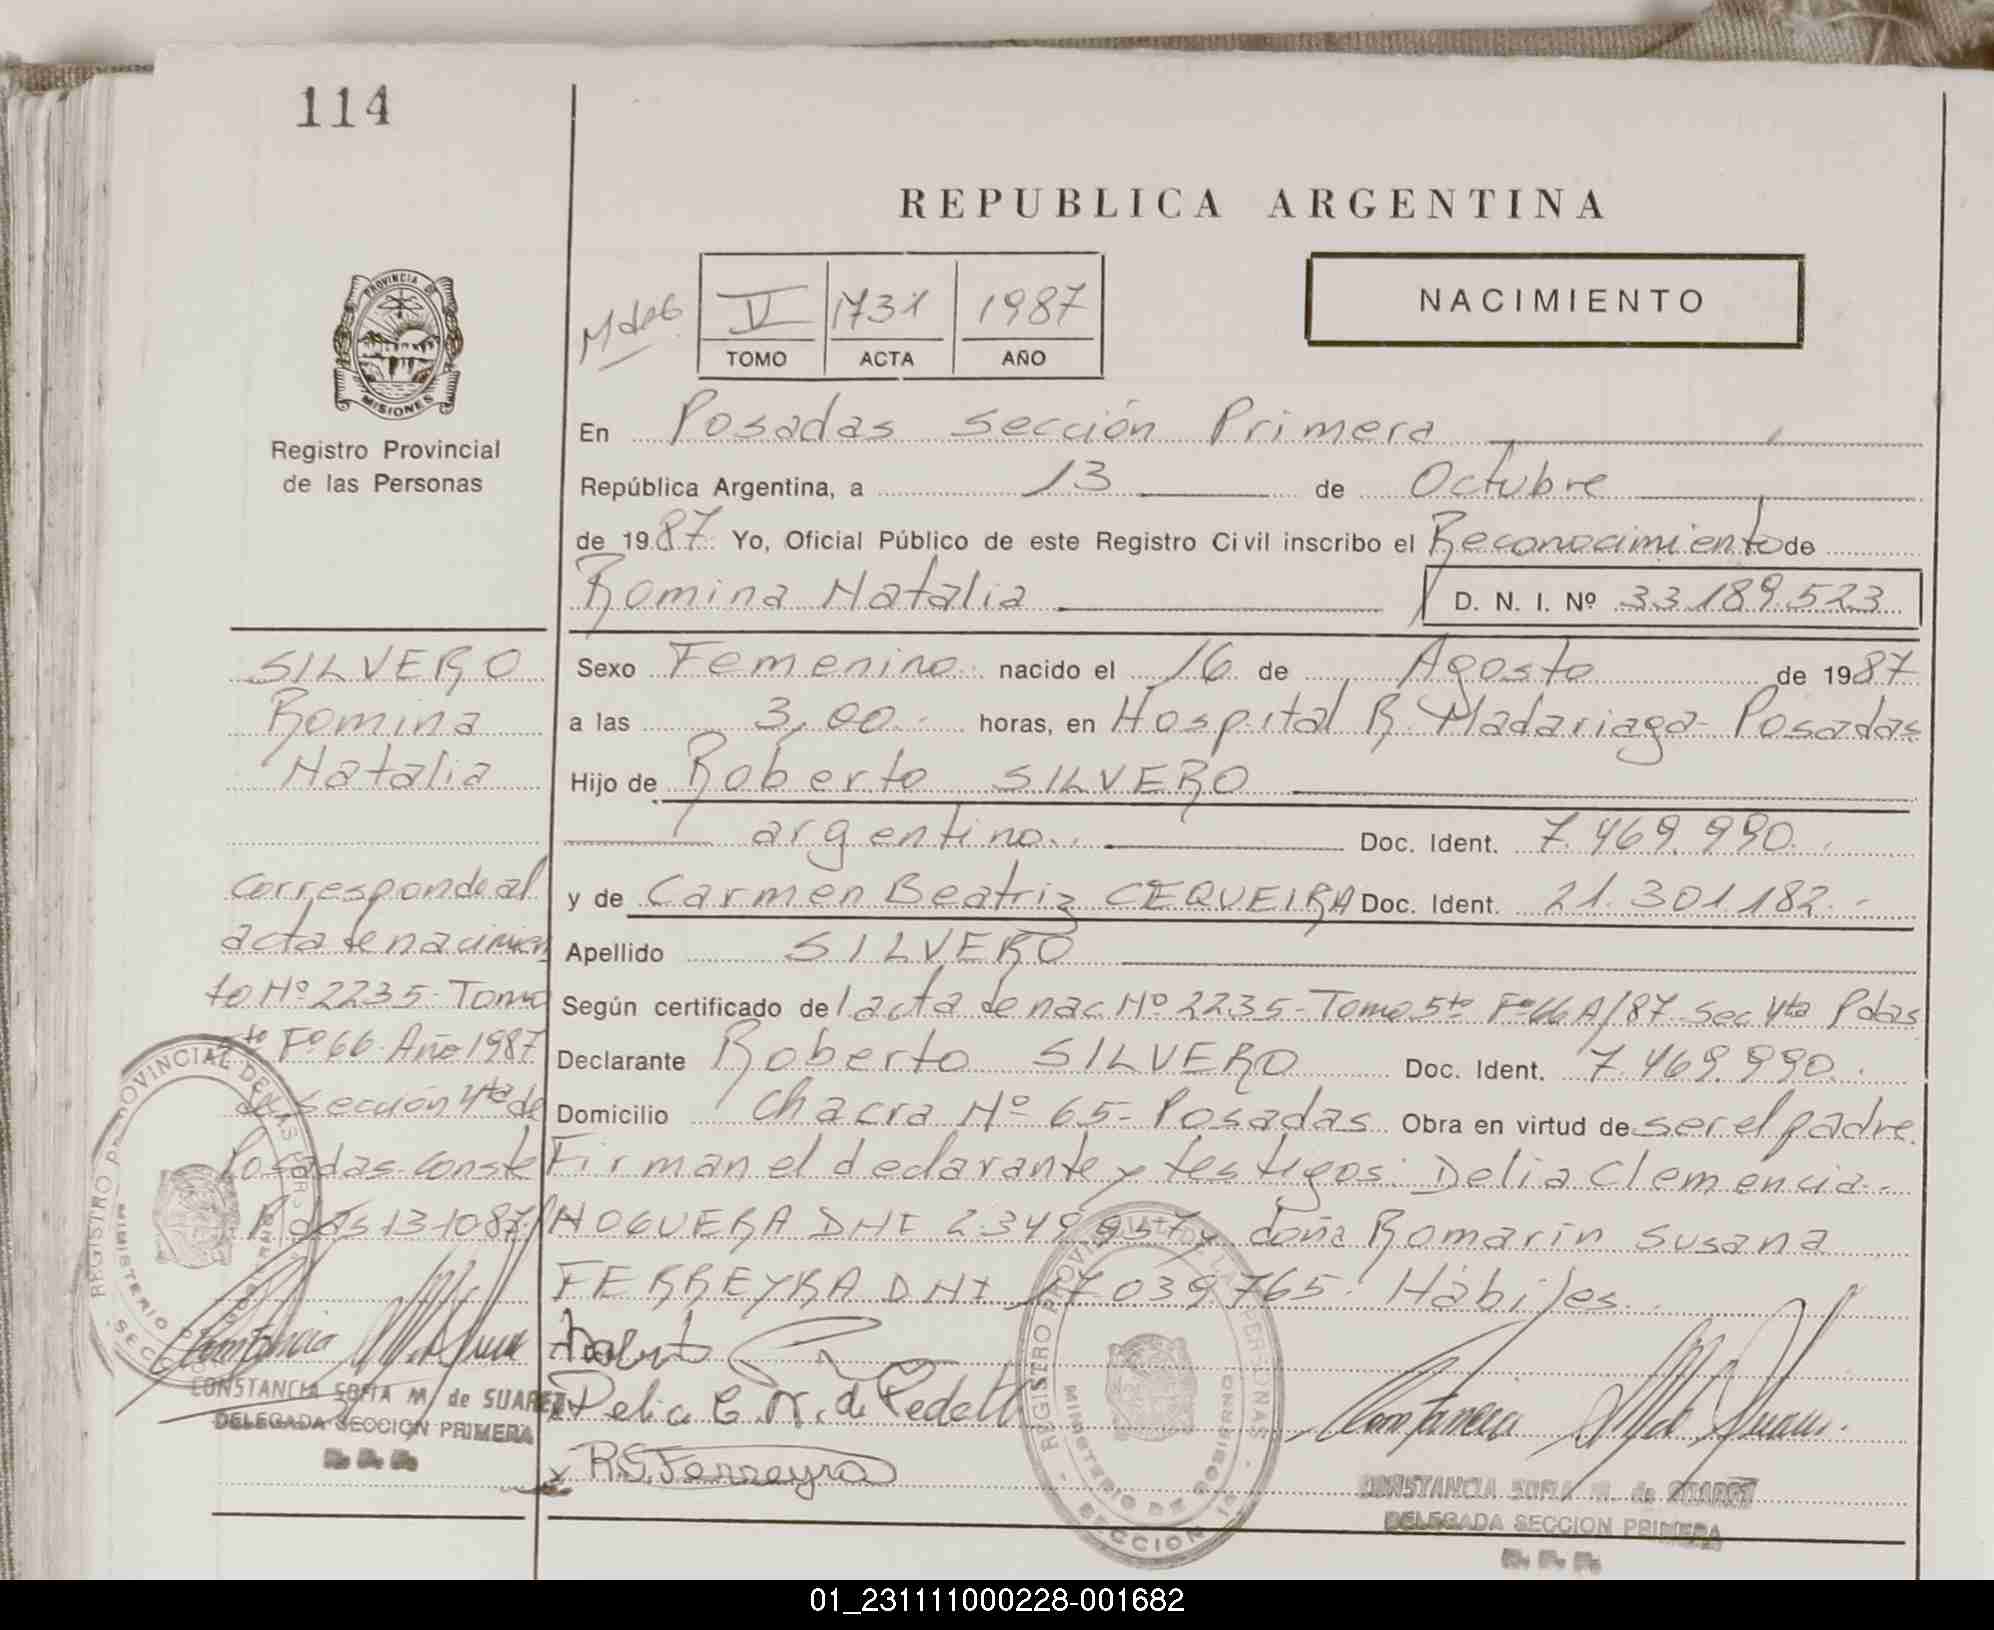 114
REPUBLICA ARGENTINA
V 1731 1987
TOMO ACTA AÑO
NACIMIENTO
PROVINCIA DE
MISIONES
Registro Provincial
de las Personas
En Posadas Sección Primera
República Argentina, a 13 de Octubre
de 1987 Yo, Oficial Público de este Registro Civil inscribo el Reconocimiento de
Romina Natalia D. N. I. Nº 33.189.523
Sexo Femenino nacido el 16 de Agosto de 1987
a las 3,00 horas, en Hospital R. Madariaga Posadas
Hijo de Roberto SILVERO
argentino Doc. Ident. 7.469.990
y de Carmen Beatriz CEQUEIRA Doc. Ident. 21.301.182
Apellido SILVERO
Según certificado de l acta de nac Nº 2235 - Tomo 5to Fº 66 A/87 Sec 4ta Pdas
Declarante Roberto SILVERO Doc. Ident. 7.469.990
Domicilio Chacra Nº 65 - Posadas Obra en virtud de ser el padre.
Firman el declarante y testigos: Delia Clemencia
NOGUERA DNI 2.349.957 y doña Romarin Susana
FERREYRA DNI 17 039 765. Hábiles
Delia C. N. de
R.S. Ferreyra
CONSTANCIA SOFIA M. de SUAREZ
DELEGADA SECCION PRIMERA
REGISTRO PROVINCIAL DE LAS PERSONAS
MINISTERIO DE GOBIERNO
SECCION 1a
SILVERO
Romina
Natalia
Corresponde al
acta de nacimien
to Nº 2235 - Tomo
5to Fº 66 Año 1987
de Sección 4ta de
Posadas. Conste
Pdas 13-10-87
CONSTANCIA SOFIA M. de SUAREZ
DELEGADA SECCION PRIMERA
REGISTRO PROVINCIAL DE LAS PERSONAS
MINISTERIO
01_231111000228-001682